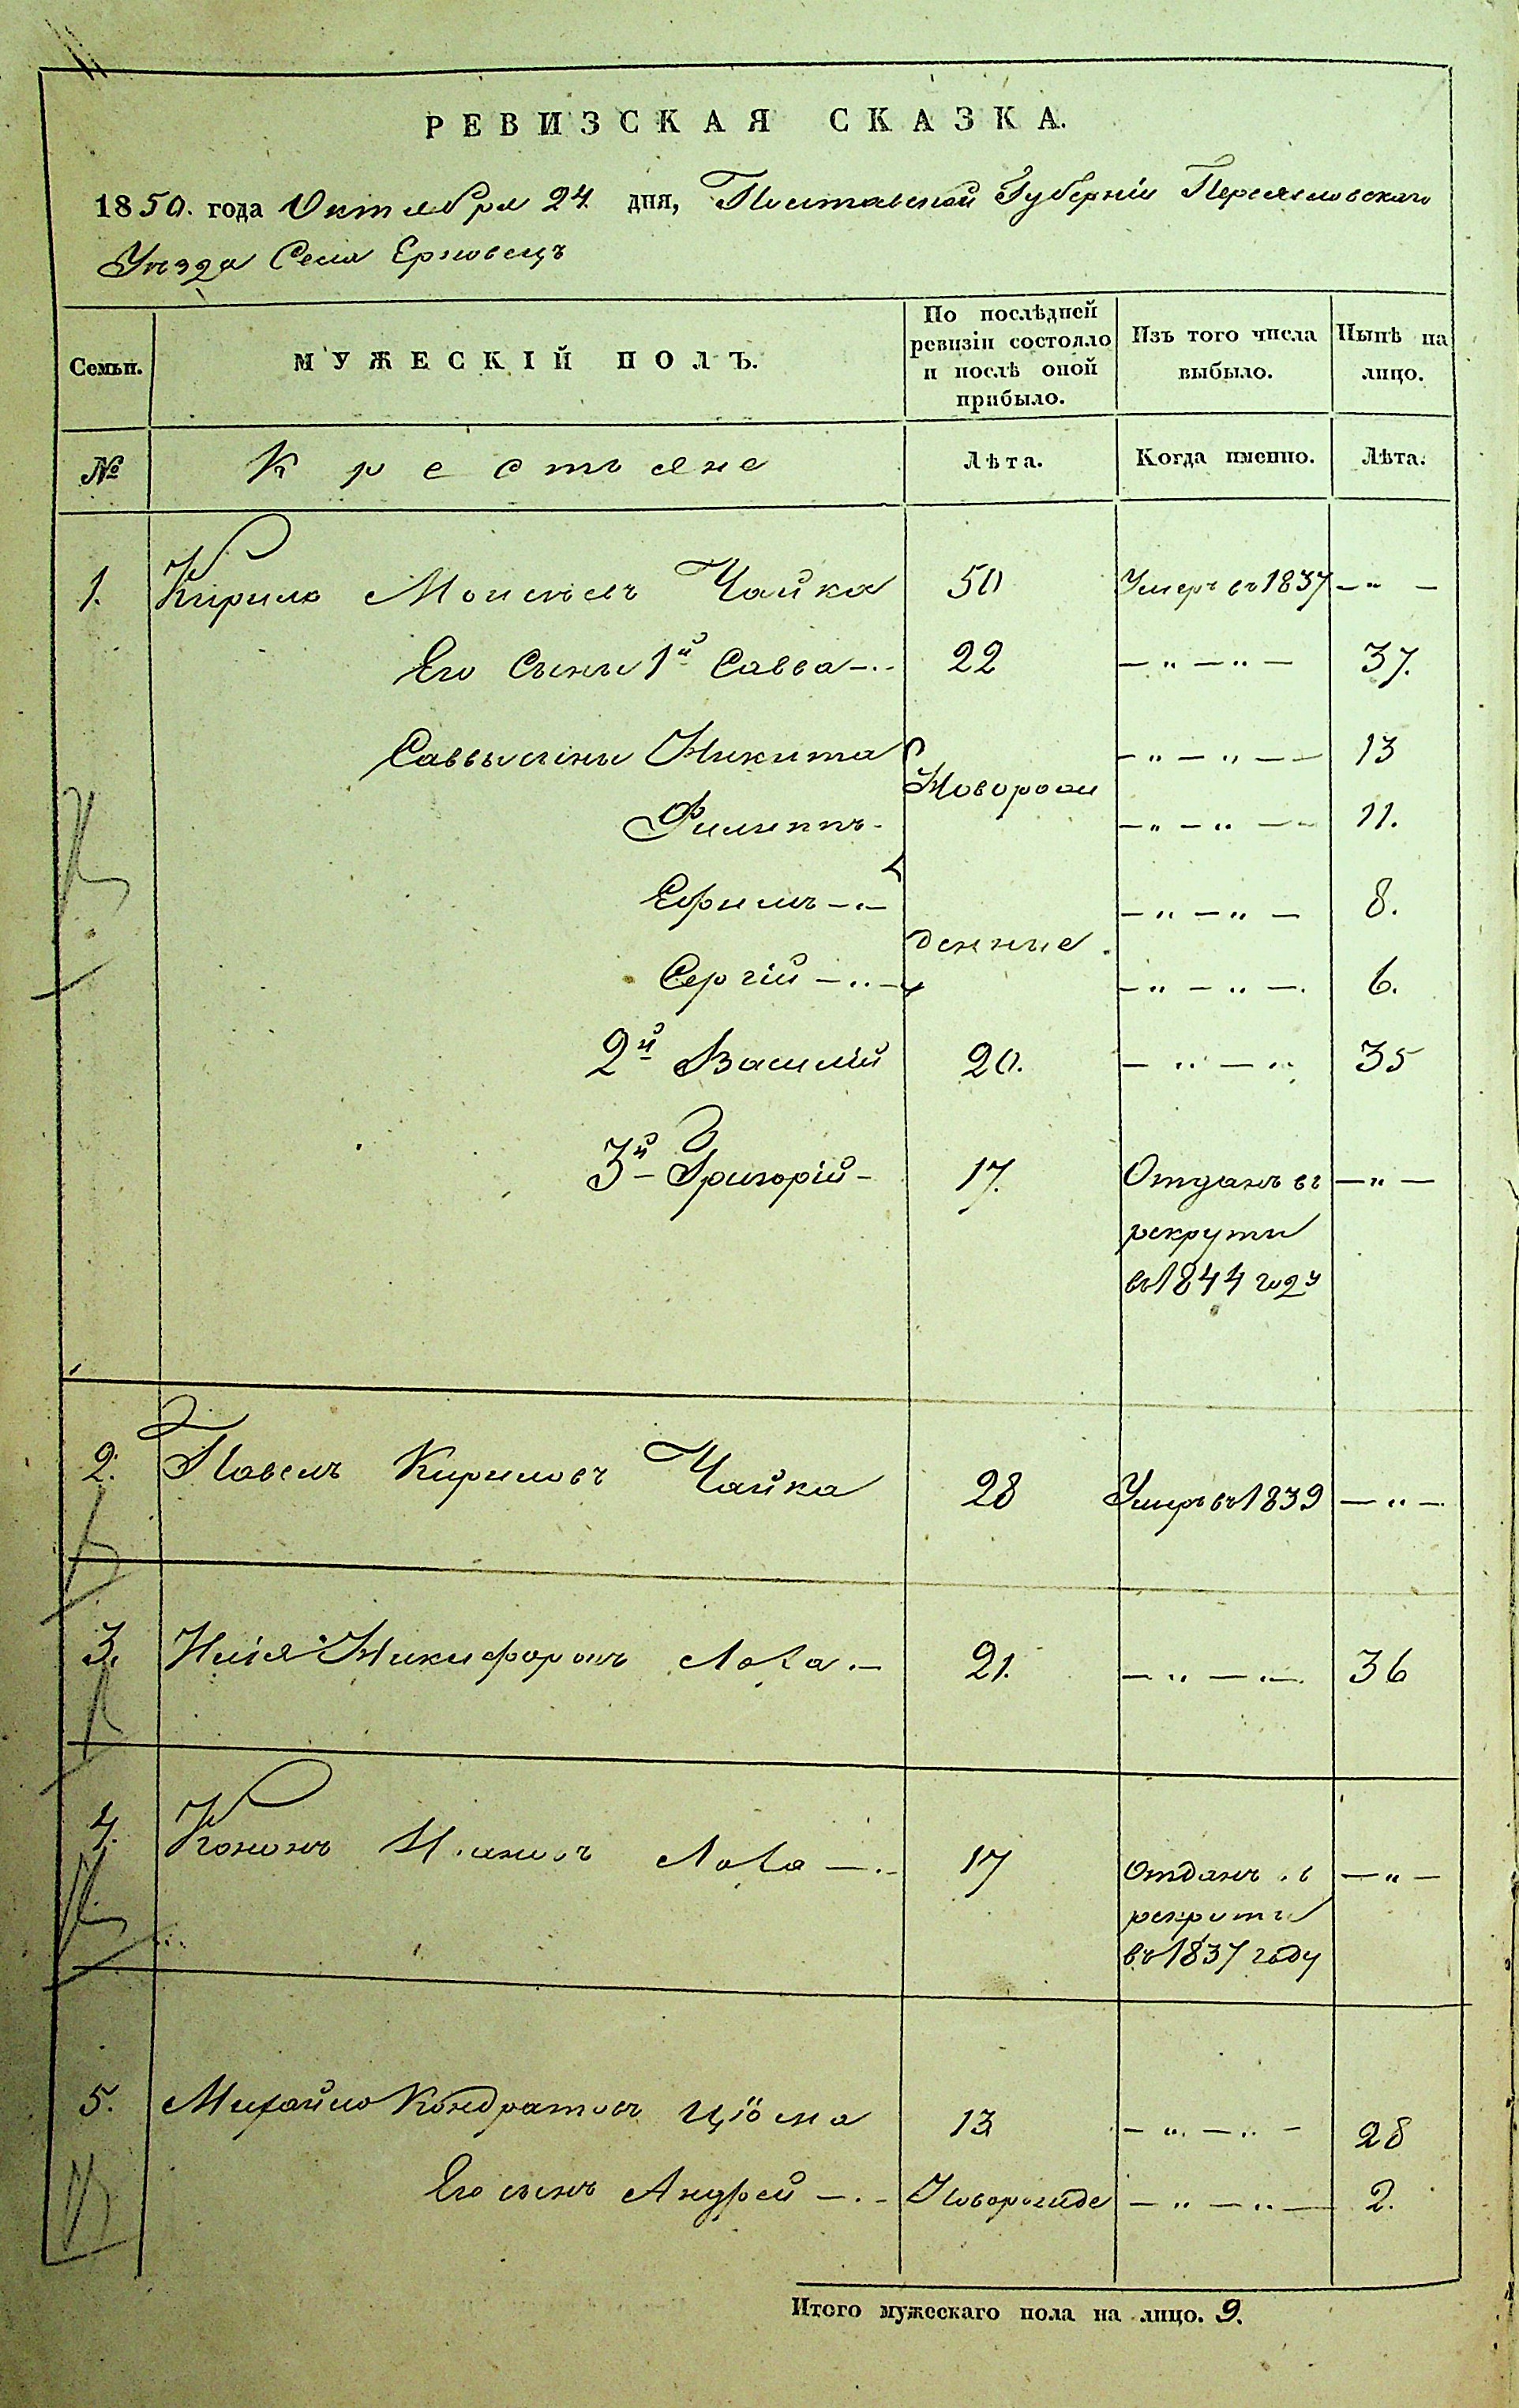 РЕВИЗСКАЯ СКАЗКА.
1850. года Октября 24. дня, Полтавской Губерніи Переяславскаго
Уѣзда Села Ерковецъ
Семьи.
МУЖЕСКІЙ ПОЛЪ.
По послѣдней ревизіи состояло и послѣ оной прибыло.
Изъ того числа выбыло.
Нынѣ на лицо.
№ Крестьяне Лѣта. Когда именно. Лѣта.
1. Кирило Моисѣевъ Чайка 50 Умеръ въ 1837 — „ —
Его Сыны 1й Савва 22 — „ — „ — 37.
Саввы сыны Никита — „ — „ — 13
Новорож
Филиппъ — „ — „ — 11.
Ефимъ — „ — „ — 8.
денные.
Сергій — „ — „ — 6.
2й Василій 20. — „ — „ 35
3й Григорій 17. Отданъ въ — „ —
рекруты
въ 1844 году
2. Павелъ Кириловъ Чайка 28 Умеръ въ 1839 — „ —
3. Никифоровъ 21. — „ — „ — 36
4. Кононъ 17 Отданъ въ — „ —
рекруты
въ 1837 году
5. Михайло Кондратовъ Цiома 13 — „ — „ — 28
Его сынъ Андрей Новорожде — „ — „ — 2.
Итого мужескаго пола на лицо. 9.